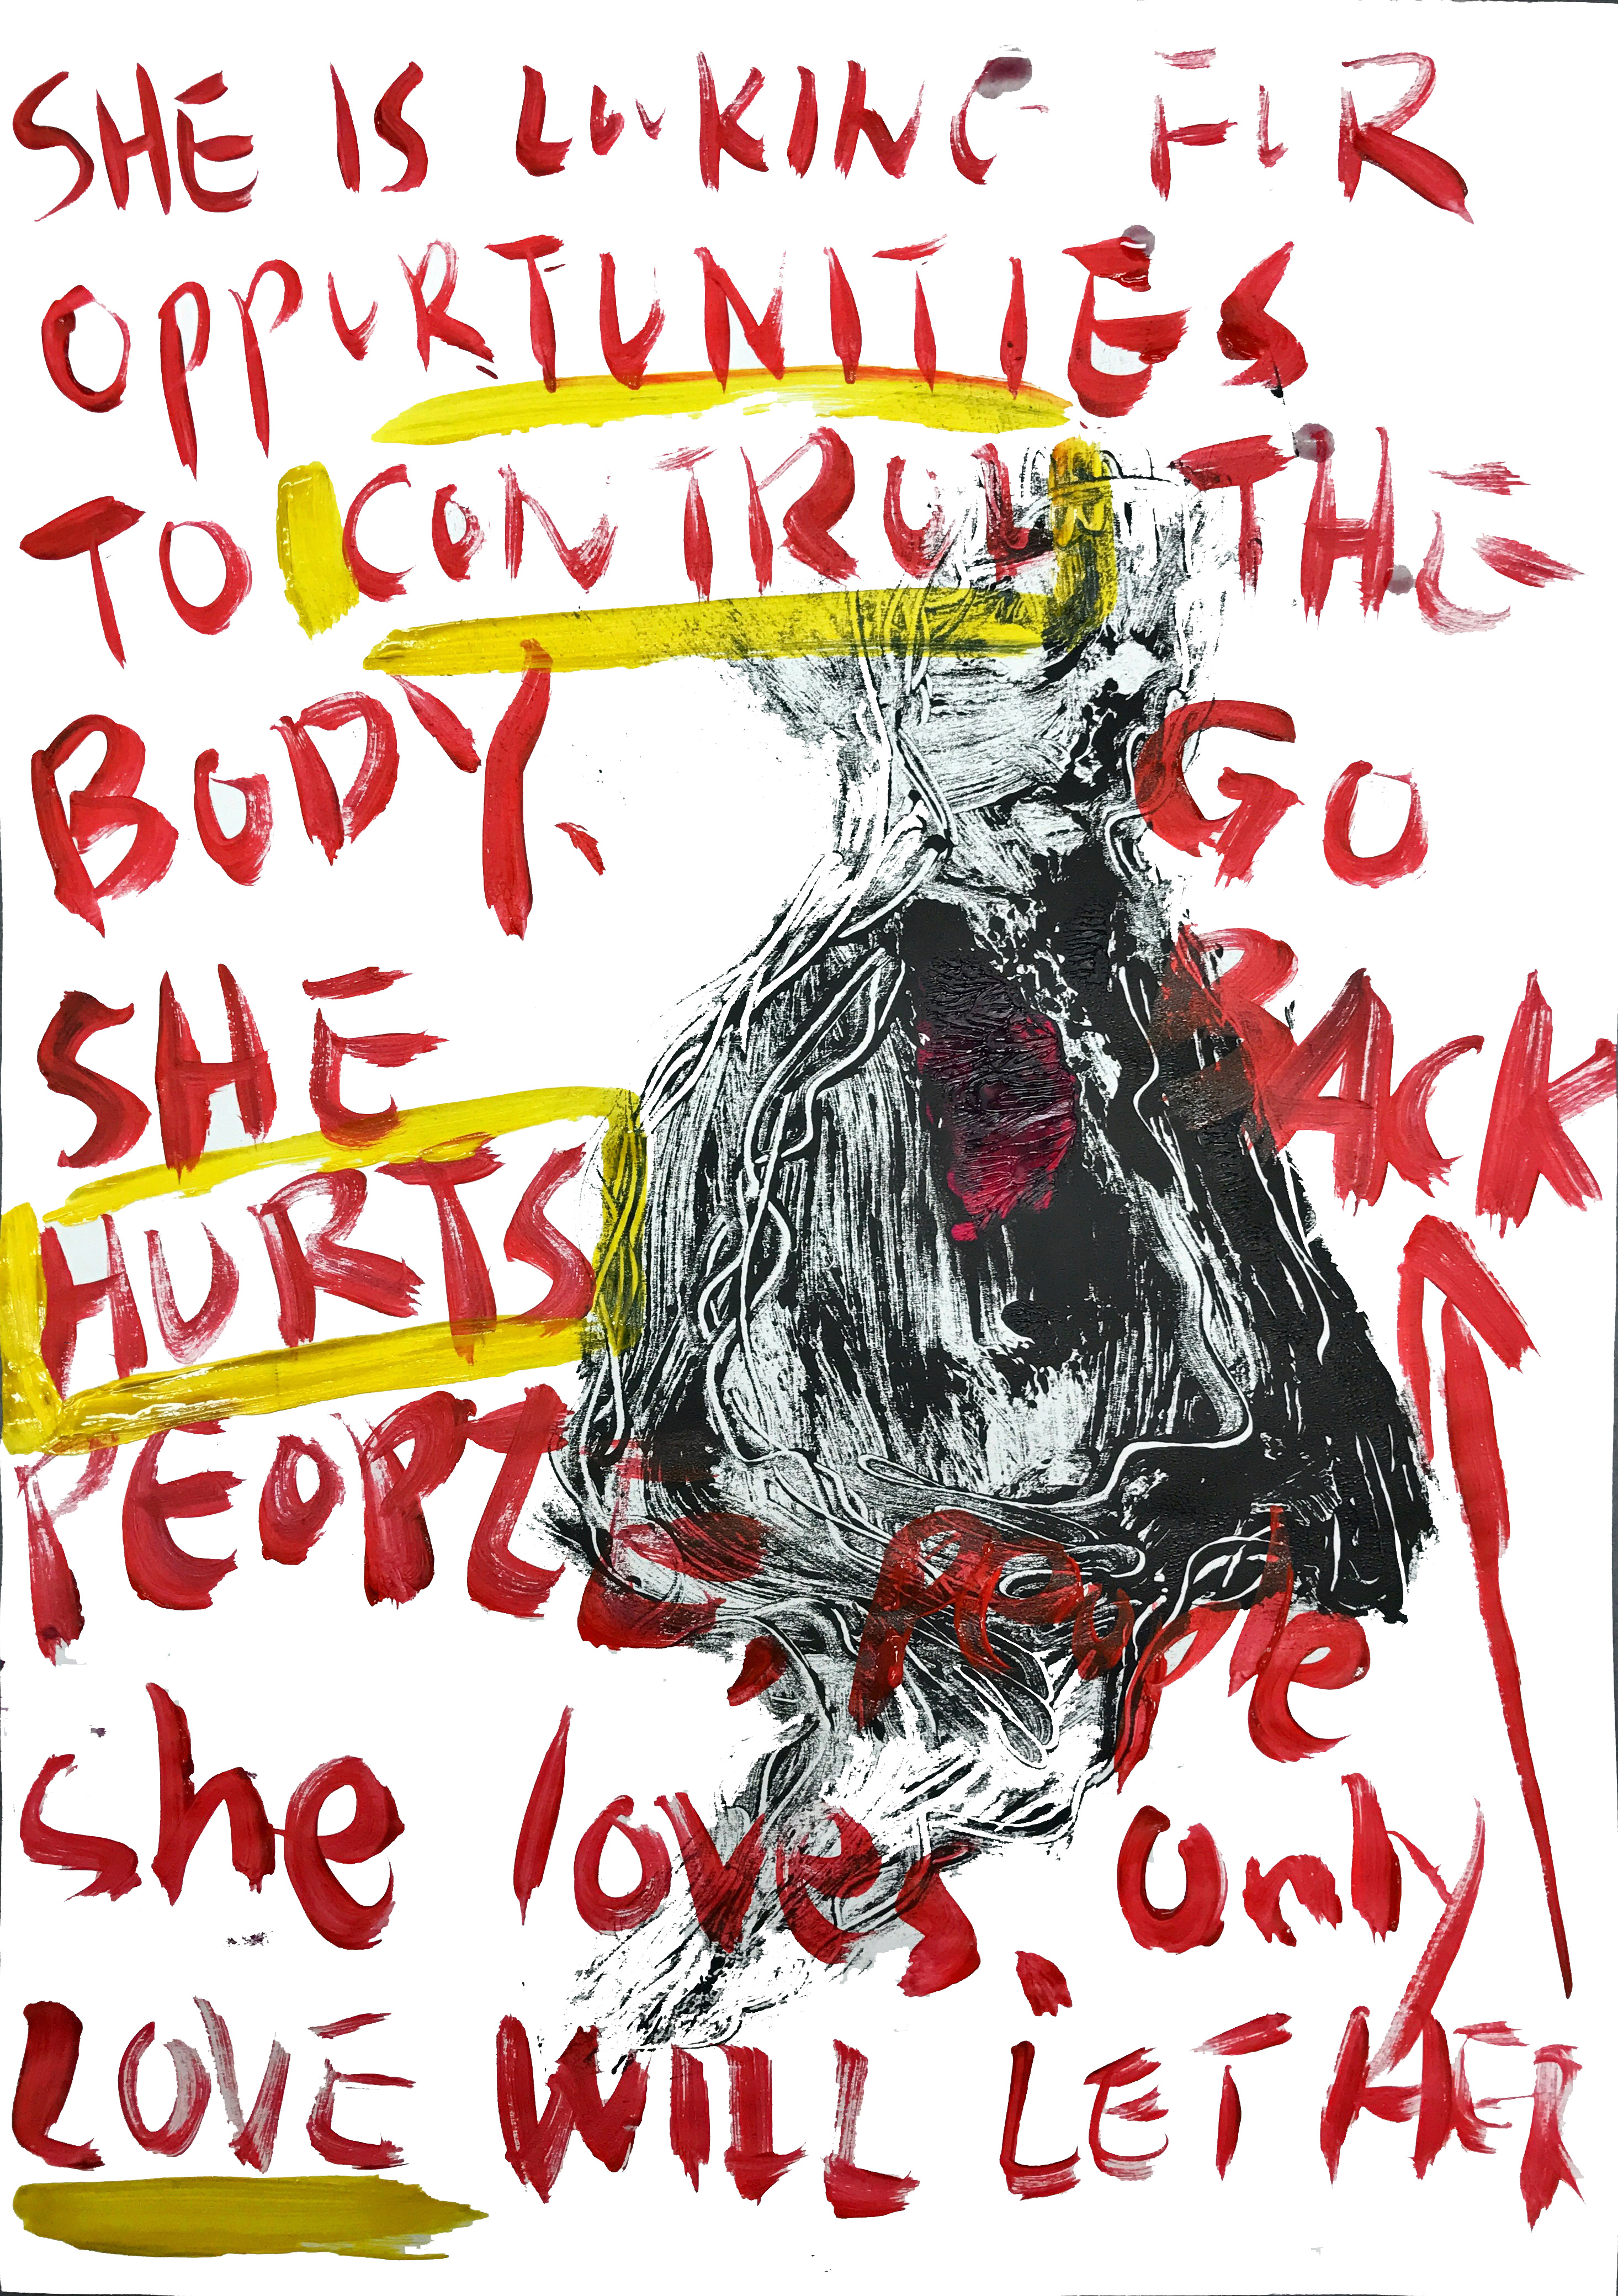 SHE IS LOOKING FOR
OPPORTUNITIES
TO CONTROL THE
BODY. GO
SHE BACK
HURTS
PEOPLE, people
she loves. only
LOVE WILL LET HER